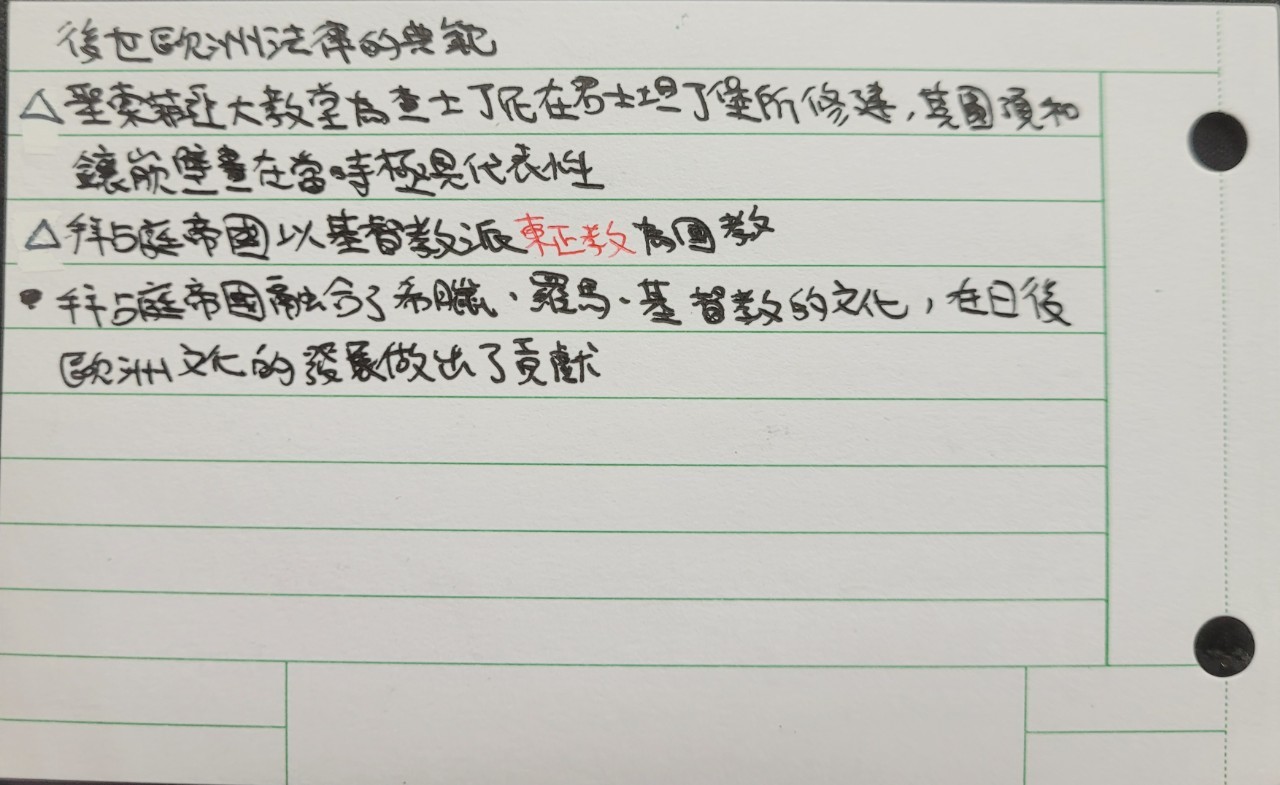 後世歐洲法律的典範
△ 聖索菲亞大教堂為查士丁尼在君士坦丁堡所修建，其圓頂和
鑲嵌壁畫在當時極具代表性
△ 拜占庭帝國以基督教派東正教為國教
• 拜占庭帝國融合了希臘、羅馬、基督教的文化，在日後
歐洲文化的發展做出了貢獻